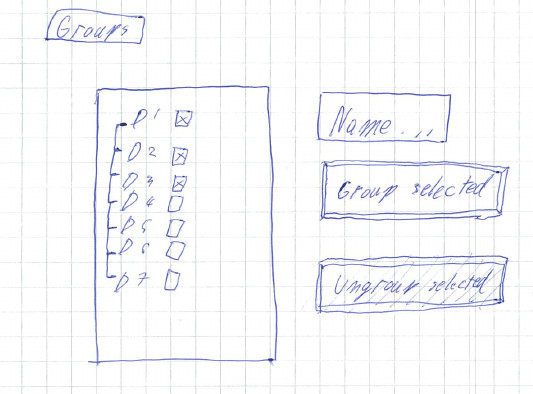 Groups
D1
D2
D3
D4
D5
D6
D7
Name...
Group selected
Ungroup selected